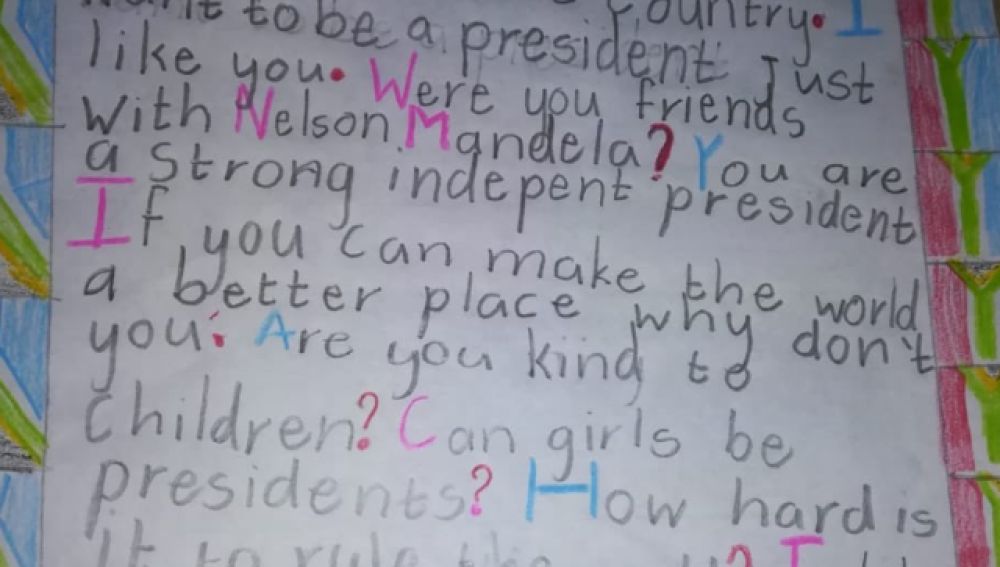 to be a president Just
like you. Were you friends
With Nelson Mandela? You are
a Strong indepent president
If you can make the world
a better place why don't
you. Are you kind to
Children? Can girls be
presidents? How hard is
it to rule the